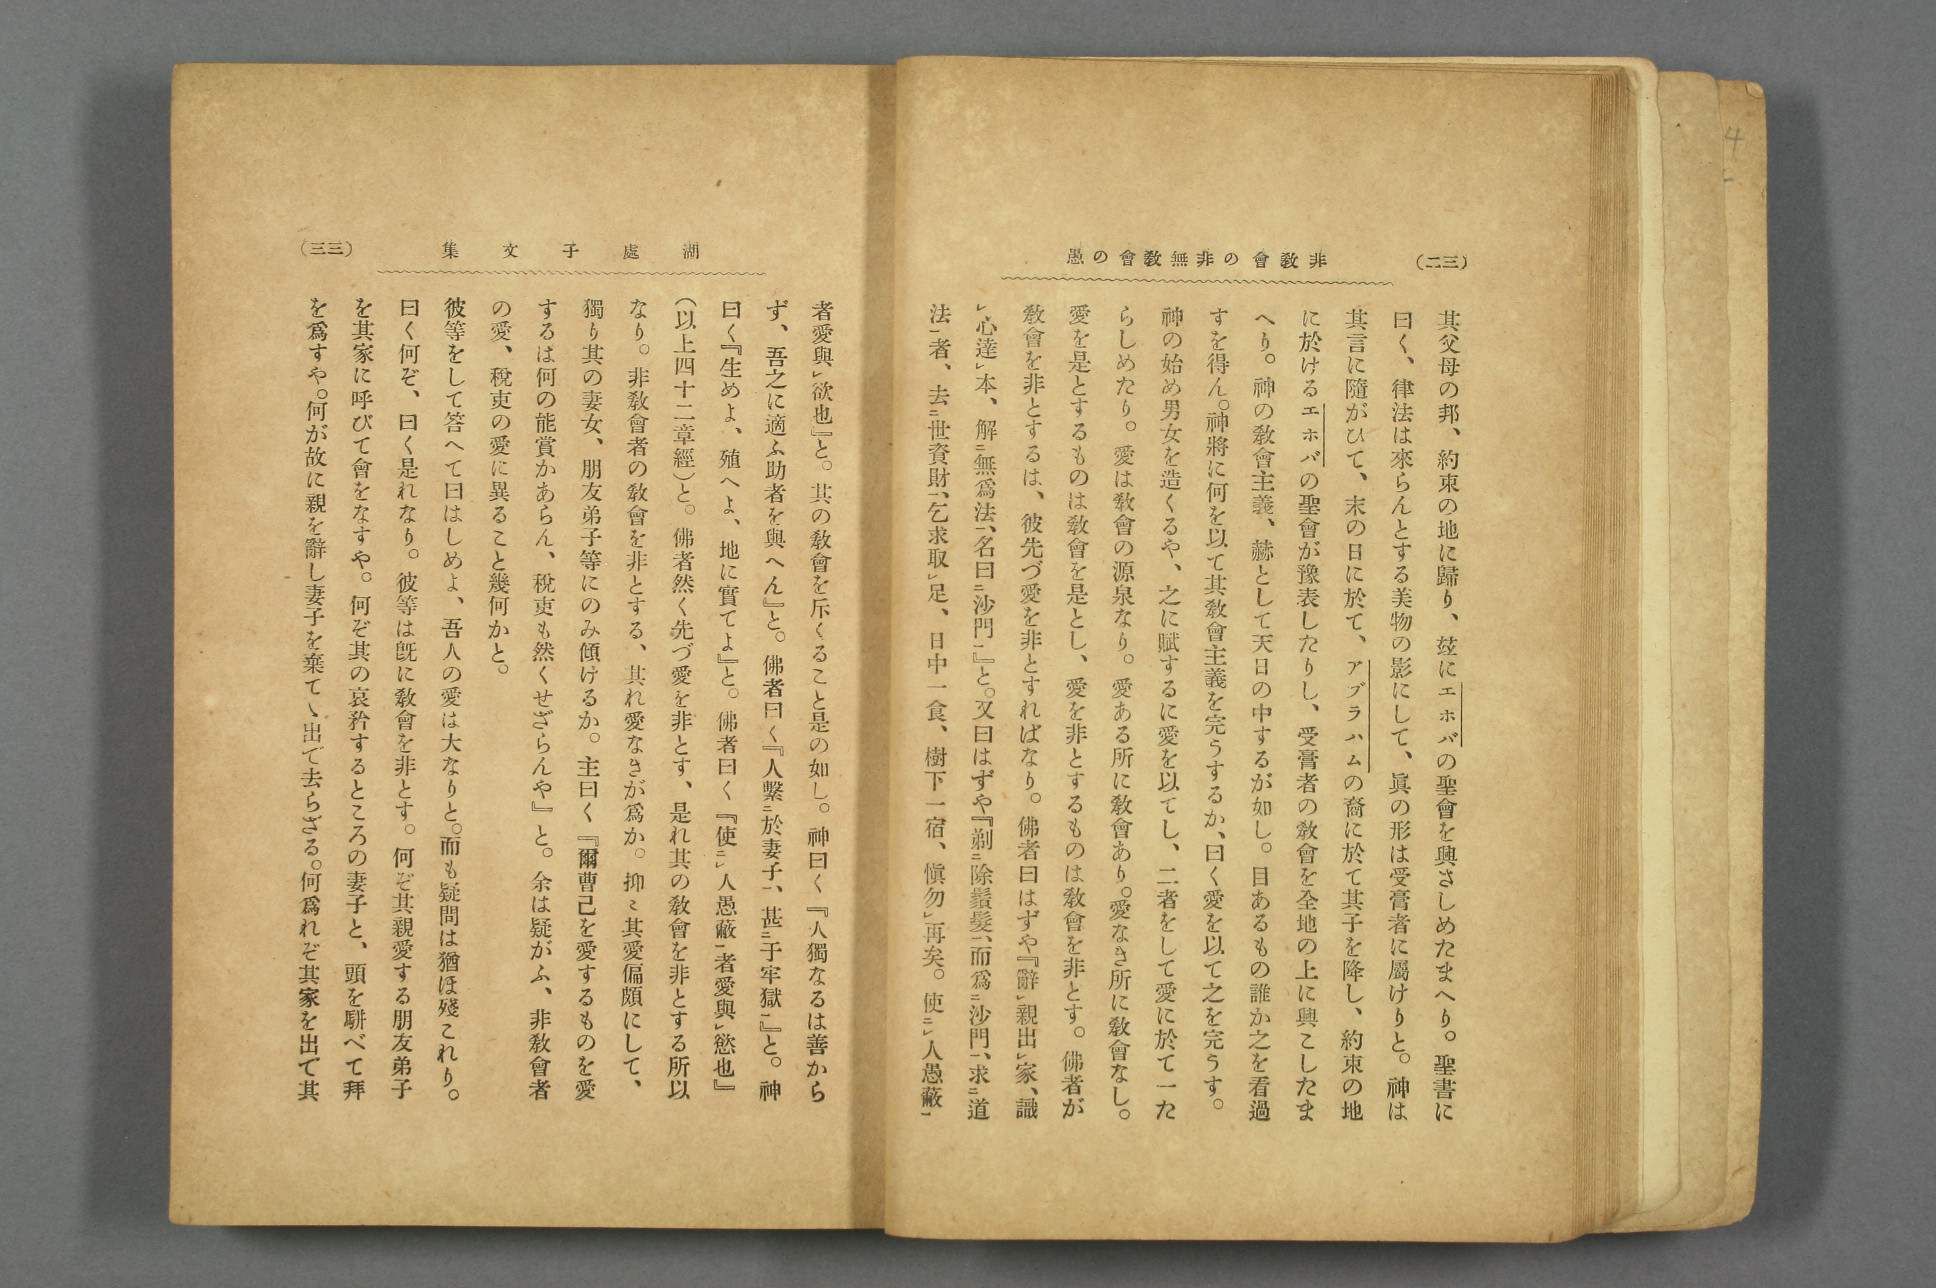 (三二)
非教會の非無教會の愚
其父母の邦、約束の地に歸り、玆にエホバの聖會を興さしめたまへり。聖書に
曰く、律法は來らんとする美物の影にして、眞の形は受膏者に屬けりと。神は
其言に隨がひて、末の日に於て、アブラハムの裔に於て其子を降し、約束の地
に於けるエホバの聖會が豫表したりし、受膏者の教會を全地の上に興こしたま
へり。神の教會主義、赫として天日の中するが如し。目あるもの誰か之を看過
すを得ん。神將に何を以て其教會主義を完うするか、曰く愛を以て之を完うす。
神の始め男女を造くるや、之に賦するに愛を以てし、二者をして愛に於て一た
らしめたり。愛は教會の源泉なり。愛ある所に教會あり。愛なき所に教會なし。
愛を是とするものは教會を是とし、愛を非とするものは教會を非とす。佛者が
教會を非とするは、彼先づ愛を非とすればなり。佛者曰はずや『辭レ親出レ家、識
レ心達レ本、解ニ無爲法一、名曰ニ沙門一』と。又曰はずや『剃ニ除鬚髮一、而爲ニ沙門一、求ニ道
法一者、去ニ世資財一、乞求取レ足、日中一食、樹下一宿、愼勿レ再矣。使ニレ人愚蔽一
湖處子文集
(三三)
者愛與レ欲也』と。其の教會を斥くること是の如し。神曰く『人獨なるは善から
ず、吾之に適ふ助者を與へん』と。佛者曰く『人繫ニ於妻子一、甚ニ于牢獄一』と。神
曰く『生めよ、殖へよ、地に實てよ』と。佛者曰く『使ニレ人愚蔽一者愛與レ慾也』
(以上四十二章經)と。佛者然く先づ愛を非とす、是れ其の教會を非とする所以
なり。非教會者の教會を非とする、其れ愛なきが爲か。抑〻其愛偏頗にして、
獨り其の妻女、朋友弟子等にのみ傾けるか。主曰く『爾曹己を愛するものを愛
するは何の能賞かあらん、稅吏も然くせざらんや』と。余は疑がふ、非教會者
の愛、稅吏の愛に異ること幾何かと。
彼等をして答へて曰はしめよ、吾人の愛は大なりと。而も疑問は猶ほ殘これり。
曰く何ぞ、曰く是れなり。彼等は旣に教會を非とす。何ぞ其親愛する朋友弟子
を其家に呼びて會をなすや。何ぞ其の哀矜するところの妻子と、頭を駢べて拜
を爲すや。何が故に親を辭し妻子を棄てゝ出で去らざる。何爲れぞ其家を出で其